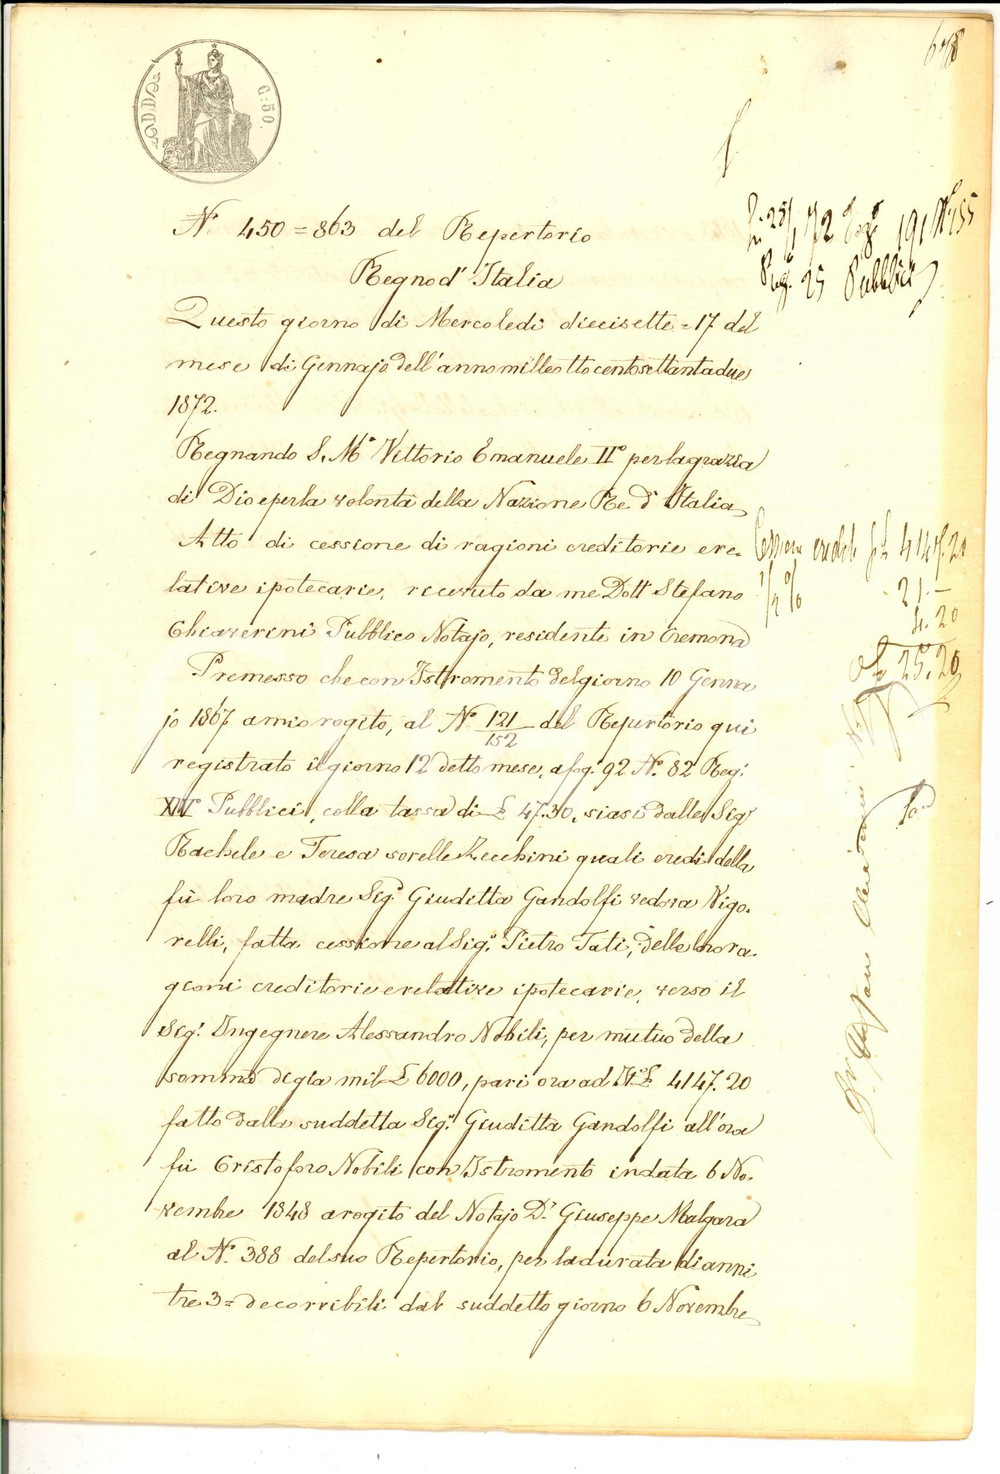 678
C: 50.
Nº 450 = 863 del Repertorio
Regno d' Italia
Questo giorno di Mercoledi diecisette = 17 del
mese di Gennajo dell'anno milleottocentosettantadue
1872.
Regnando S. Mª Vittorio Emanuele IIº per la grazia
di Dio e per la volontà della Nazione Re d' Italia
Atto di cessione di ragioni creditorie e re-
lative ipotecarie, ricevuto da me Dott Stefano
Chiaverini Pubblico Notajo, residente in Cremona
Premesso che con Istromento del giorno 10 Genna
jo 1867 a mio rogito, al Nº 121/152 del Repertorio qui
registrato il giorno 12 detto mese, a fog. 92 Nº 82 Reg.
XIVº Pubblici, colla tassa di £ 47.30, siasi dalle Sigʳ
Rachele e Teresa sorelle Zecchini quali eredi della
fù loro madre Sigª Giuditta Gandolfi vedova Vigo-
relli, fatta cessione al Sigʳ Pietro Tati, delle loro ra-
gioni creditorie e relative ipotecarie, verso il
Sigʳ Ingegnere Alessandro Nobili, per mutuo della
somma di già mil £ 6000, pari ora ad It £ 4147.20
fatto dalla suddetta Sigª Giuditta Gandolfi all'ora
fù Cristoforo Nobili con Istromento in data 6 No-
vembre 1848 a rogito del Notajo Dʳ Giuseppe Malgara
al Nº 388 del suo Repertorio, per la durata di anni
tre 3 = decorribili dal suddetto giorno 6 Novembre
25/1 72 191 Nº 155
Reg. 25 Pubblici
Cessione crediti £ 4147.20
1/2 %
21.—
4.20
25.20